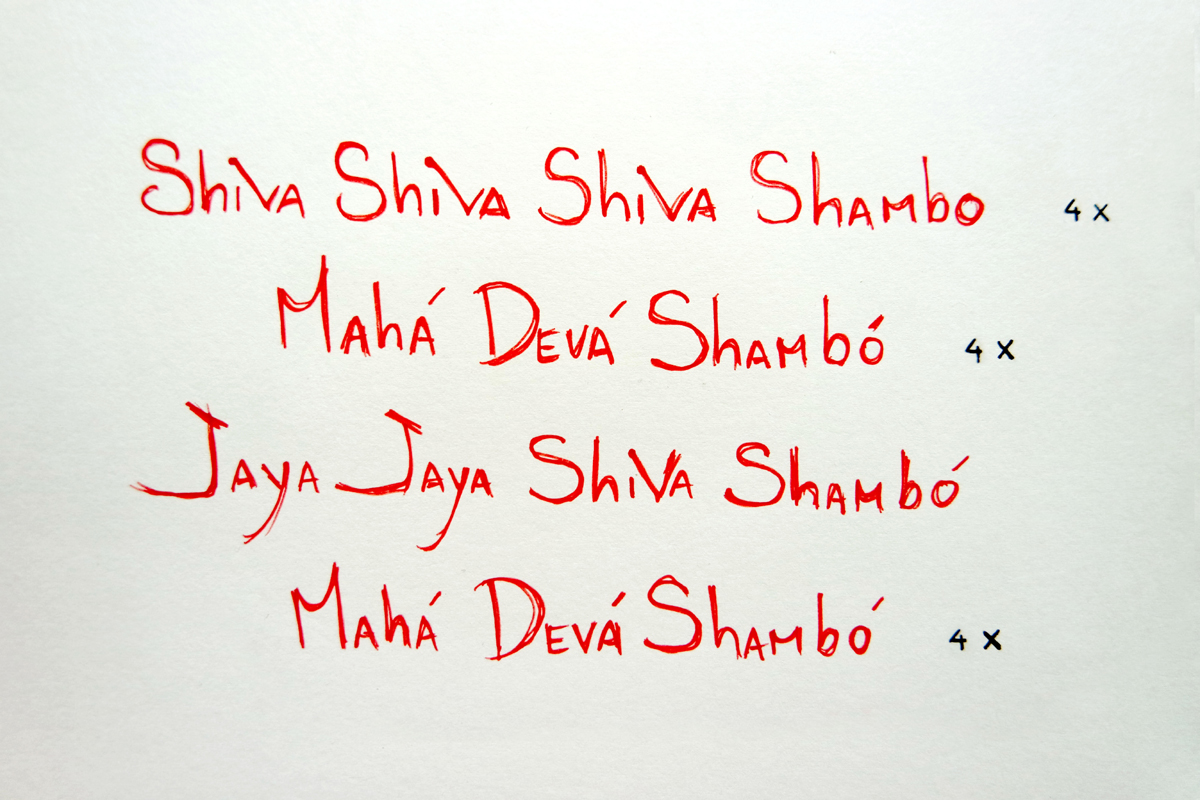 Shiva Shiva Shiva Shambo 4 x
Mahá Devá Shambó 4 x
Jaya Jaya Shiva Shambó
Mahá Devá Shambó 4 x